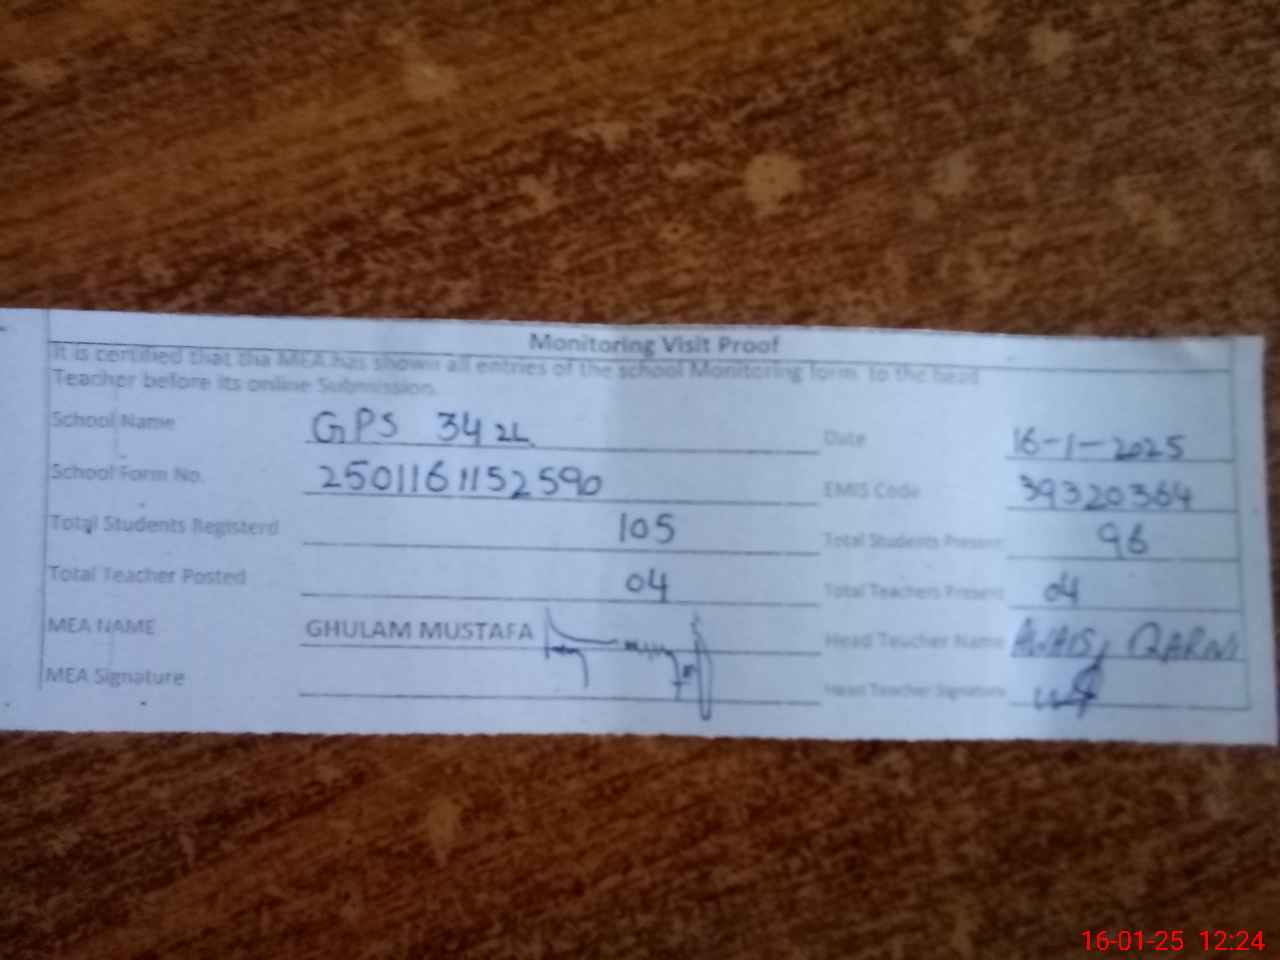 Monitoring Visit Proof
It is certified that tha MEA has shown all entries of the school Monitoring form to the head
Teacher before its online Submission.
School Name GPS 34 2L Date 16-1-2025
School Form No. 2501161152590 EMIS Code 39320364
Total Students Registerd 105 Total Students Present 96
Total Teacher Posted 04 Total Teachers Present 04
MEA NAME GHULAM MUSTAFA Head Teacher Name AWAIS QARNI
MEA Signature Head Teacher Signature
16-01-25 12:24